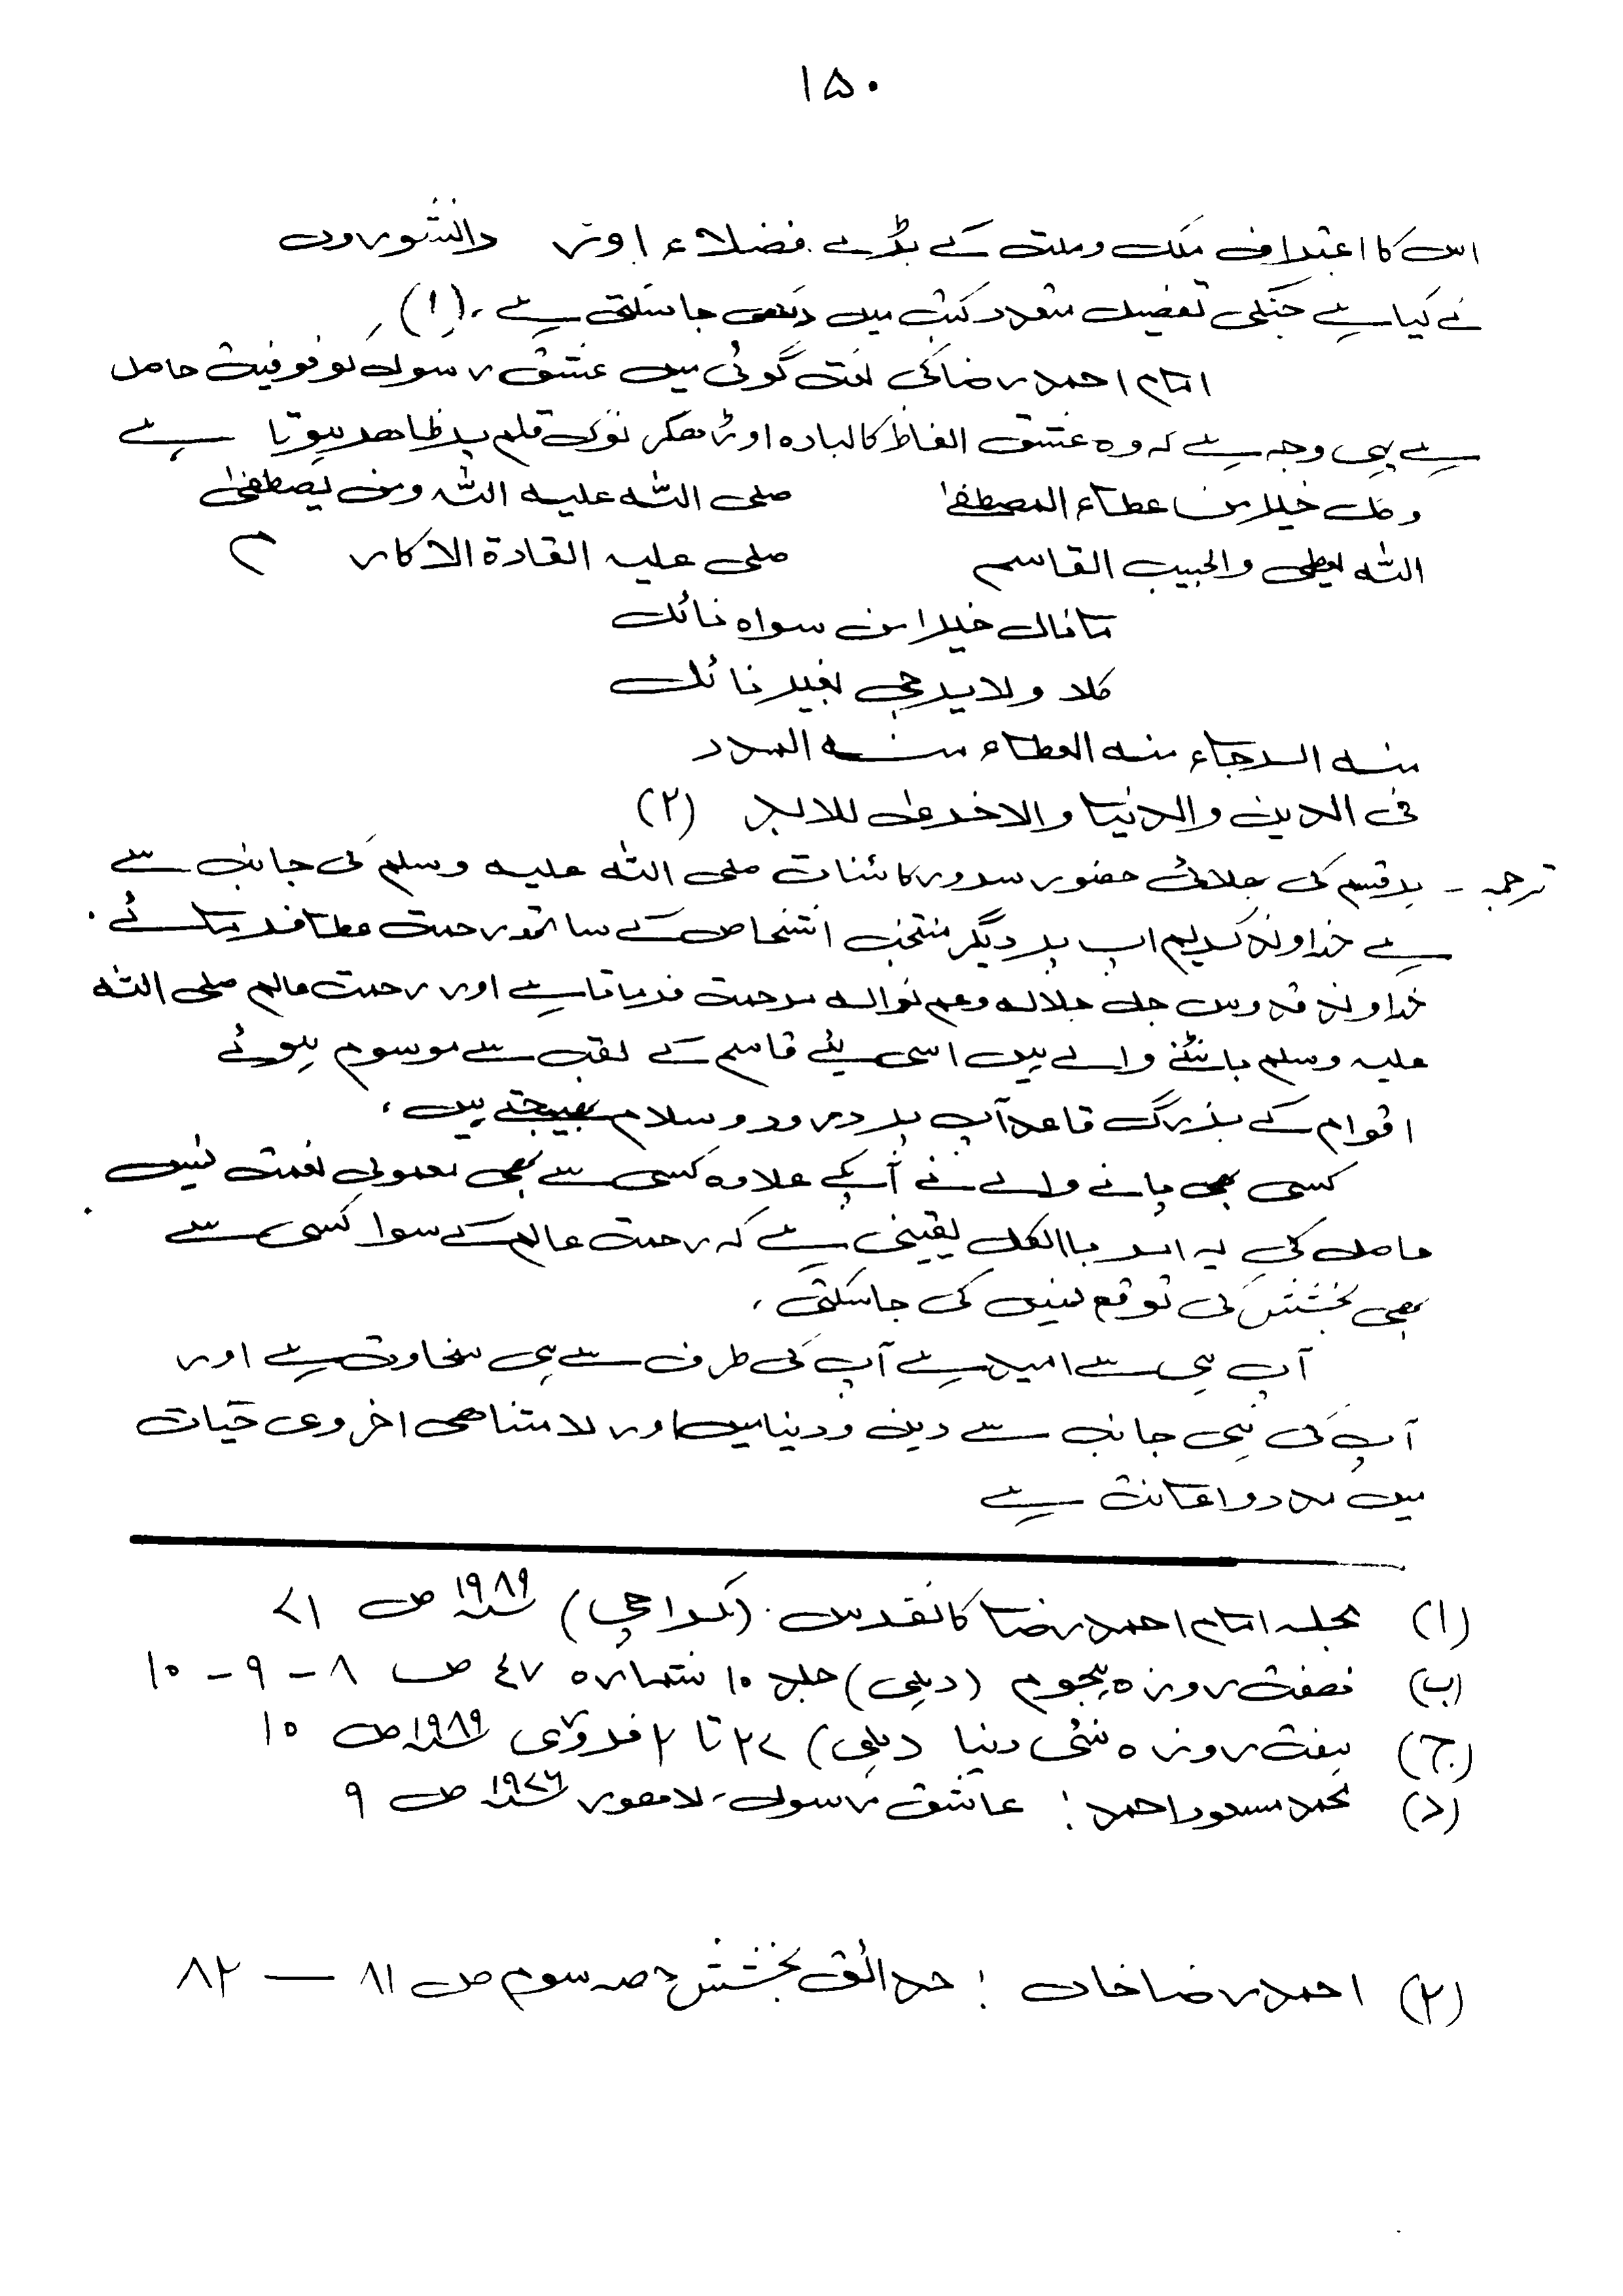 ۱۵۰
اس کا اعتراف ملک وملت کے بڑے فضلاء اور دانشوروں
نے کیا ہے جنکی تفصیل متعدد کتب میں دیکھی جاسکتی ہے ۔ (۱)
امام احمد رضا کی نعت گوئی میں عشق رسول کو فوقیت حاصل
ہے یہی وجہ ہے کہ وہ عشق الفاظ کا لبادہ اوڑھکر نوک قلم پر ظاھر ہوتا ہے
وکل خیر من عطاء المصطفیٰ صلی اللہ علیہ اللہ ومن یصطفیٰ
اللہ یعطی والحبیب القاسم صلی علیہ القادۃ الاکارم
ما نال خیرا من سواہ نائل
کلا ولا یرجی بغیر نائل
منہ الرجاء منہ العطاء منہ المدد
فی الدین والدنیا والاخریٰ للابد (۲)
ترجمہ ۔ ہر قسم کی بھلائی حضور سرور کائنات صلی اللہ علیہ وسلم کی جانب سے
ہے خداوند کریم اپ پر دیگر منتخب اشخاص کے ساتھ رحمت عطا فرمائے ۔
خداوند قدوس جل جلالہ وعم نوالہ مرحمت فرماتا ہے اور رحمت عالم صلی اللہ
علیہ وسلم بانٹنے والے ہیں اسی لئے قاسم کے لقب سے موسوم ہوئے
اقوام کے بزرگ قاعد آپ پر درود وسلام بھیجتے ہیں ،
کسی بھی پانے والے نے آپکے علاوہ کسی سے بھی معمولی نعمت نہیں
حاصل کی یہ امر باالکل یقینی ہے کہ رحمت عالم کے سوا کسی سے
بھی بخشش کی توقع نہیں کی جاسکتی ،
آپ ہی سے امید ہے آپ کی طرف سے ہی سخاوت ہے اور
آپ کی ہی جانب سے دین ودنیا میں اور لامتناھی اخروی حیات
میں مدد و اعانت ہے
(۱) مجلہ امام احمد رضا کانفرنس (کراچی) ۱۹۸۹ء ص ۷۱
(ب) ہفت روزہ ہجوم (دہلی) جلد ۱۰ شمارہ ۴۷ ص ۸ - ۹ - ۱۰
(ج) ہفت روزہ نئی دنیا دہلی) ۲۷ تا ۲ فروری ۱۹۸۹ء ص ۱۰
(د) محمد مسعود احمد : عاشق رسول ، لاھور ۱۹۷۶ء ص ۹
(۲) احمد رضا خاں : حدائق بخشش حصہ سوم ص ۸۱ — ۸۲